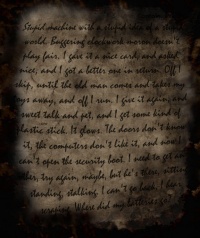 Stupid machine with a stupid idea of a stupid
world. Buggering clockwork moron doesn't
play fair. I gave it a nice card, and asked
nice, and I got a better one in return. Off I
skip, until the old man comes and takes my
toys away, and off I run. I give it again, and
sweet talk and pet, and I get some kind of
plastic stick. It glows. The doors don't know
it, the computers don't like it, and now I
can't open the security boot. I need to get an
other, try again, maybe, but he's there, sitting
standing, stalking. I can't go back, I
Where did my batteries go?